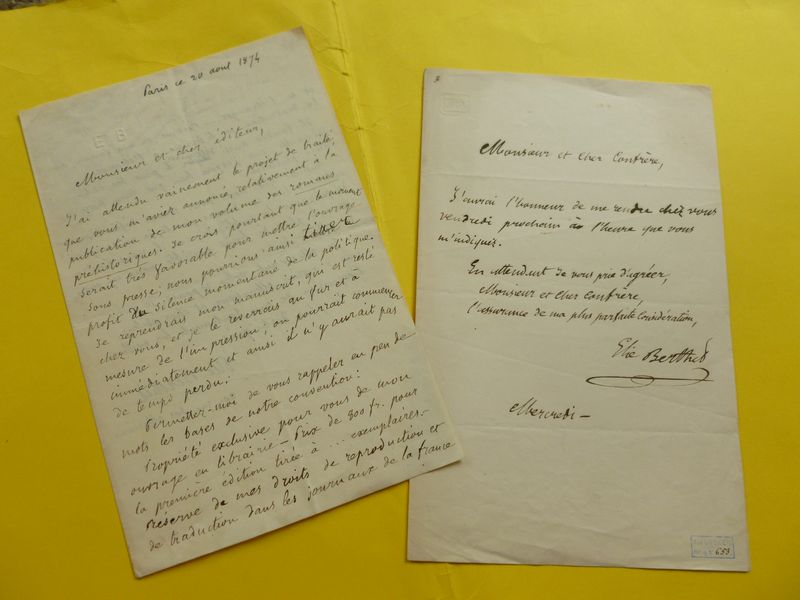 Paris ce 20 aout 1874
E B
Monsieur et cher éditeur,
J'ai attendu vainement le projet de traité,
que vous m'aviez annoncé, relativement à la
publication de mon volume des romans
préhistoriques. Je crois pourtant que le moment
serait très favorable pour mettre l'ouvrage
sous presse; nous pourrions ainsi tirer
profit du silence momentané de la politique.
Je reprendrais mon manuscrit, qui est resté
chez vous, et je le reverrais au fur et à
mesure de l'impression; on pourrait commencer
immédiatement et ainsi il n'y aurait pas
de temps perdu.
Permettez-moi de vous rappeler en peu de
mots les bases de notre convention:
Propriété exclusive pour vous de mon
ouvrage en librairie — Prix de 800 fr. pour
la première édition tirée à ... exemplaires —
Réserve de mes droits de reproduction et
de traduction dans les journaux de la france
Monsieur et Cher Confrère,
J'aurai l'honneur de me rendre chez vous
vendredi prochain à l'heure que vous
m'indiquez.
En attendant je vous prie d'agréer,
Monsieur et Cher Confrère,
l'assurance de ma plus parfaite Considération,
Elie Berthet
Mercredi —
653